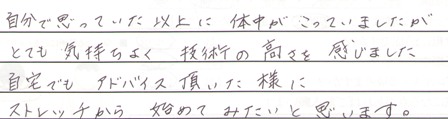 自分で思っていた以上に 体中が こっていましたが
とても 気持ちよく 技術の高さを 感じました
自宅でも アドバイス頂いた様に
ストレッチから 始めてみたいと思います。